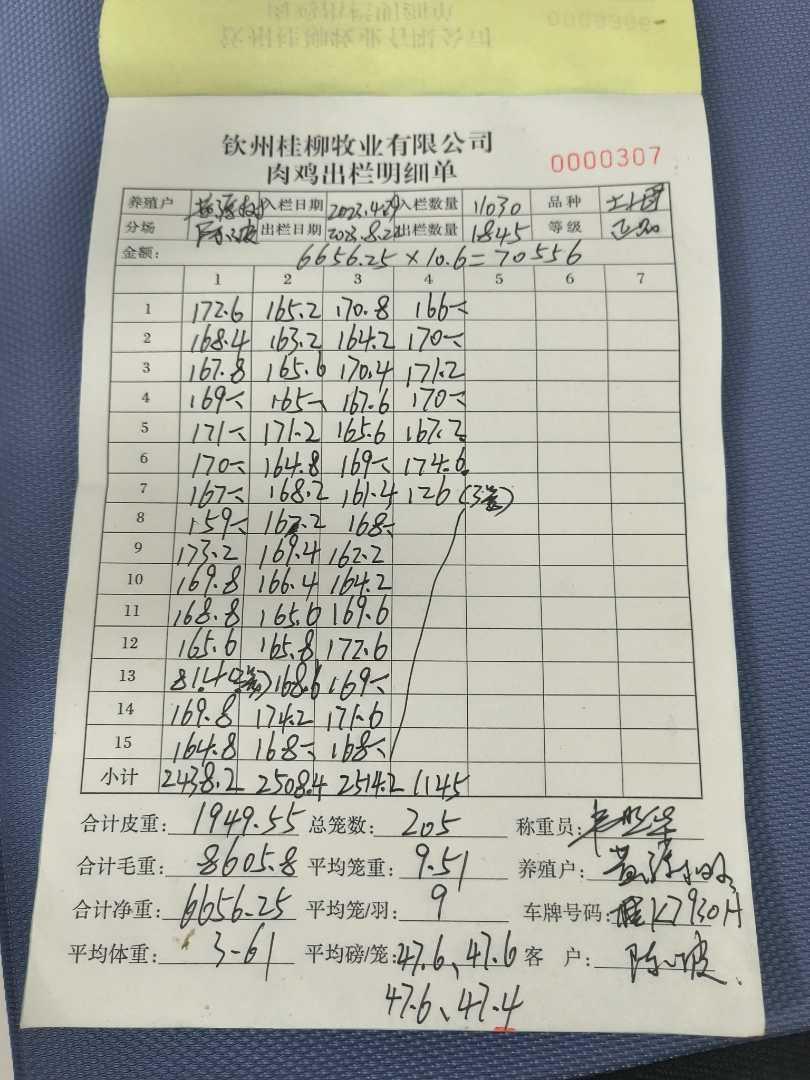 钦州桂柳牧业有限公司
肉鸡出栏明细单 0000307
养殖户 入栏日期 入栏数量 11030 品种
分场 出栏日期 出栏数量 1845 等级
金额: 6656.25 × 10.6 = 70556
1 2 3 4 5 6 7
1 172.6 165.2 170.8 166
2 168.4 163.2 164.2 170
3 167.8 165.6 170.4 171.2
4 169 165 167.6 170
5 171 171.2 165.6 167.2
6 170 164.8 169 174.6
7 167 168.2 161.4 126
8 159 167.2 168
9 173.2 169.4 162.2
10 169.8 166.4 164.2
11 168.8 165.6 169.6
12 165.6 165.8 172.6
13 81.4 168.6 169
14 169.8 174.2 171.6
15 164.8 168 168
小计 2438.2 2508.4 2514.2 1145
合计皮重: 1949.55 总笼数: 205 称重员:
合计毛重: 8605.8 平均笼重: 9.51 养殖户:
合计净重: 6656.25 平均笼/羽: 9 车牌号码: 桂K7930H
平均体重: 3-61 平均磅/笼: 47.6、47.6 客 户:
47.6、47.4